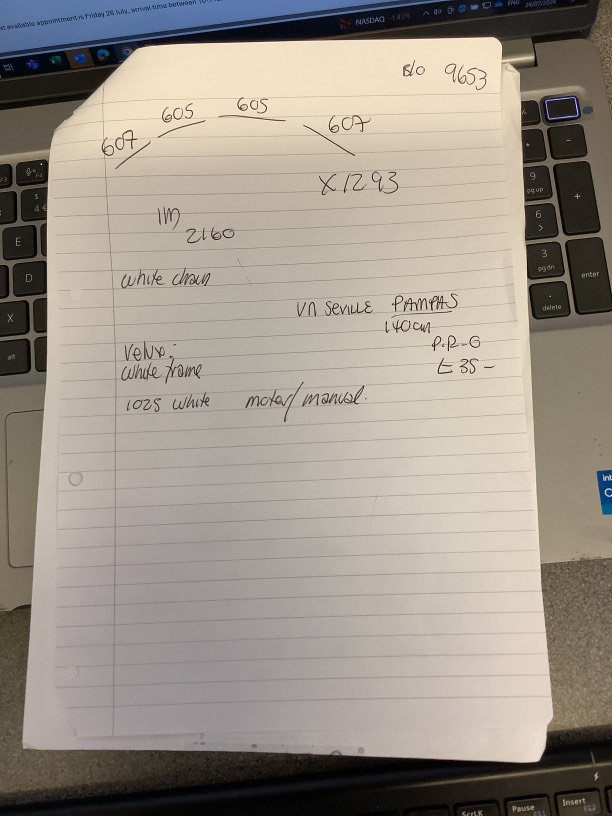 available appointment is Friday 26 July, arrival time between
NASDAQ -1.41%
ENG 24/07/2024
B/O 9653
607 605 605 607
X 1293
1M
2160
white chain
VN SEVILLE PAMPAS
140cm
P.R-G
£35-
Velux:-
white frame
1025 white motor/manual.
E
D
X
alt
9
pg up
6
3
pg dn
delete
+
-
enter
int
ScrLK
Pause
Insert